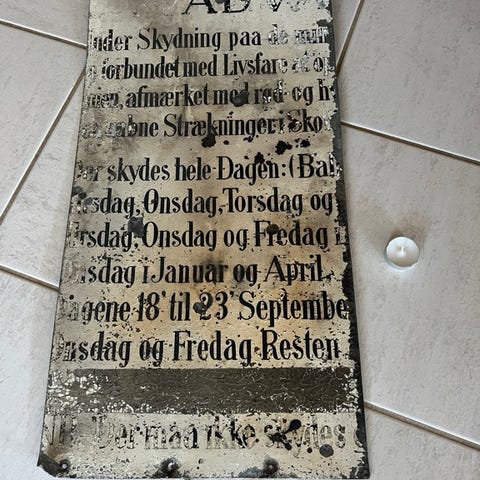 ADV
nder Skydning paa de mi
forbundet med Livsfare at op
mer, afmærket med rød- og h
aabne Strækninger i Sko
er skydes hele Dagen: (Bal
sdag, Onsdag, Torsdag og
rsdag, Onsdag og Fredag i
sdag i Januar og April,
agene 18' til 23' Septembe
nsdag og Fredag Resten
Der maa ikke skydes